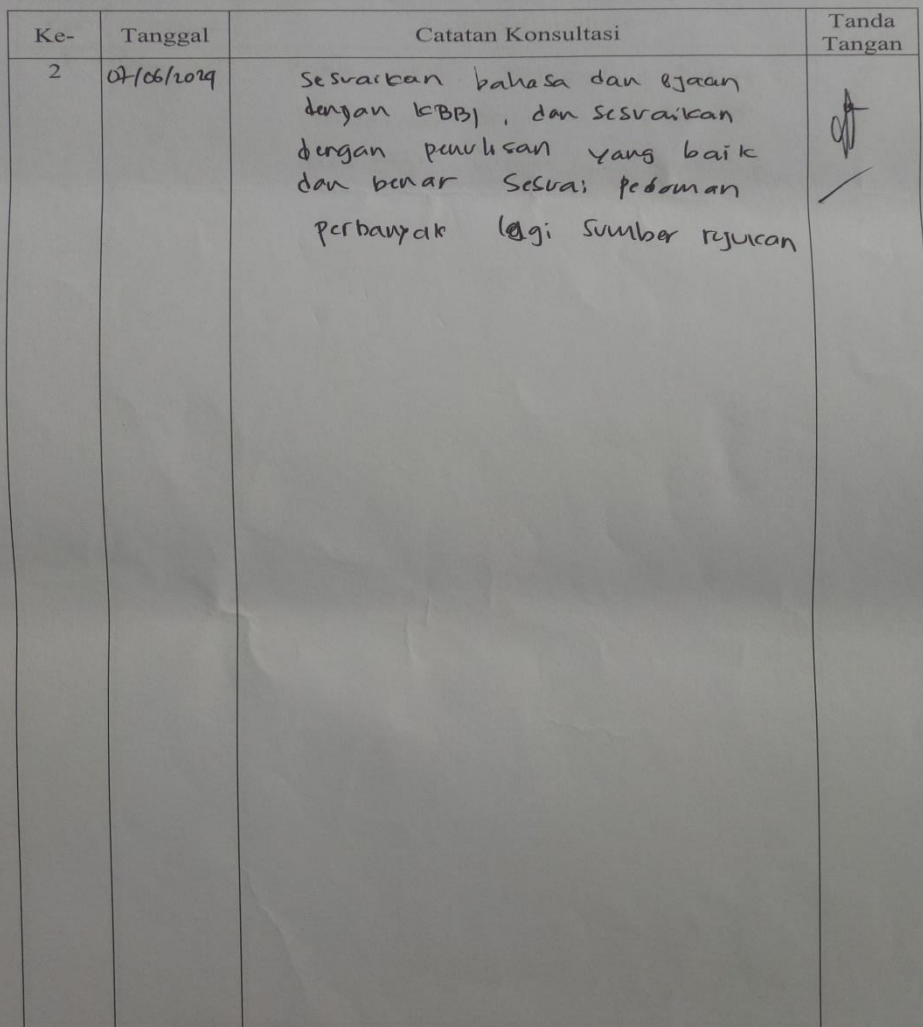 Ke- Tanggal Catatan Konsultasi Tanda Tangan
2 07/06/2024 Sesuaikan bahasa dan ejaan
dengan KBBI, dan sesuaikan
dengan penulisan yang baik
dan benar sesuai pedoman
perbanyak lagi sumber rujukan